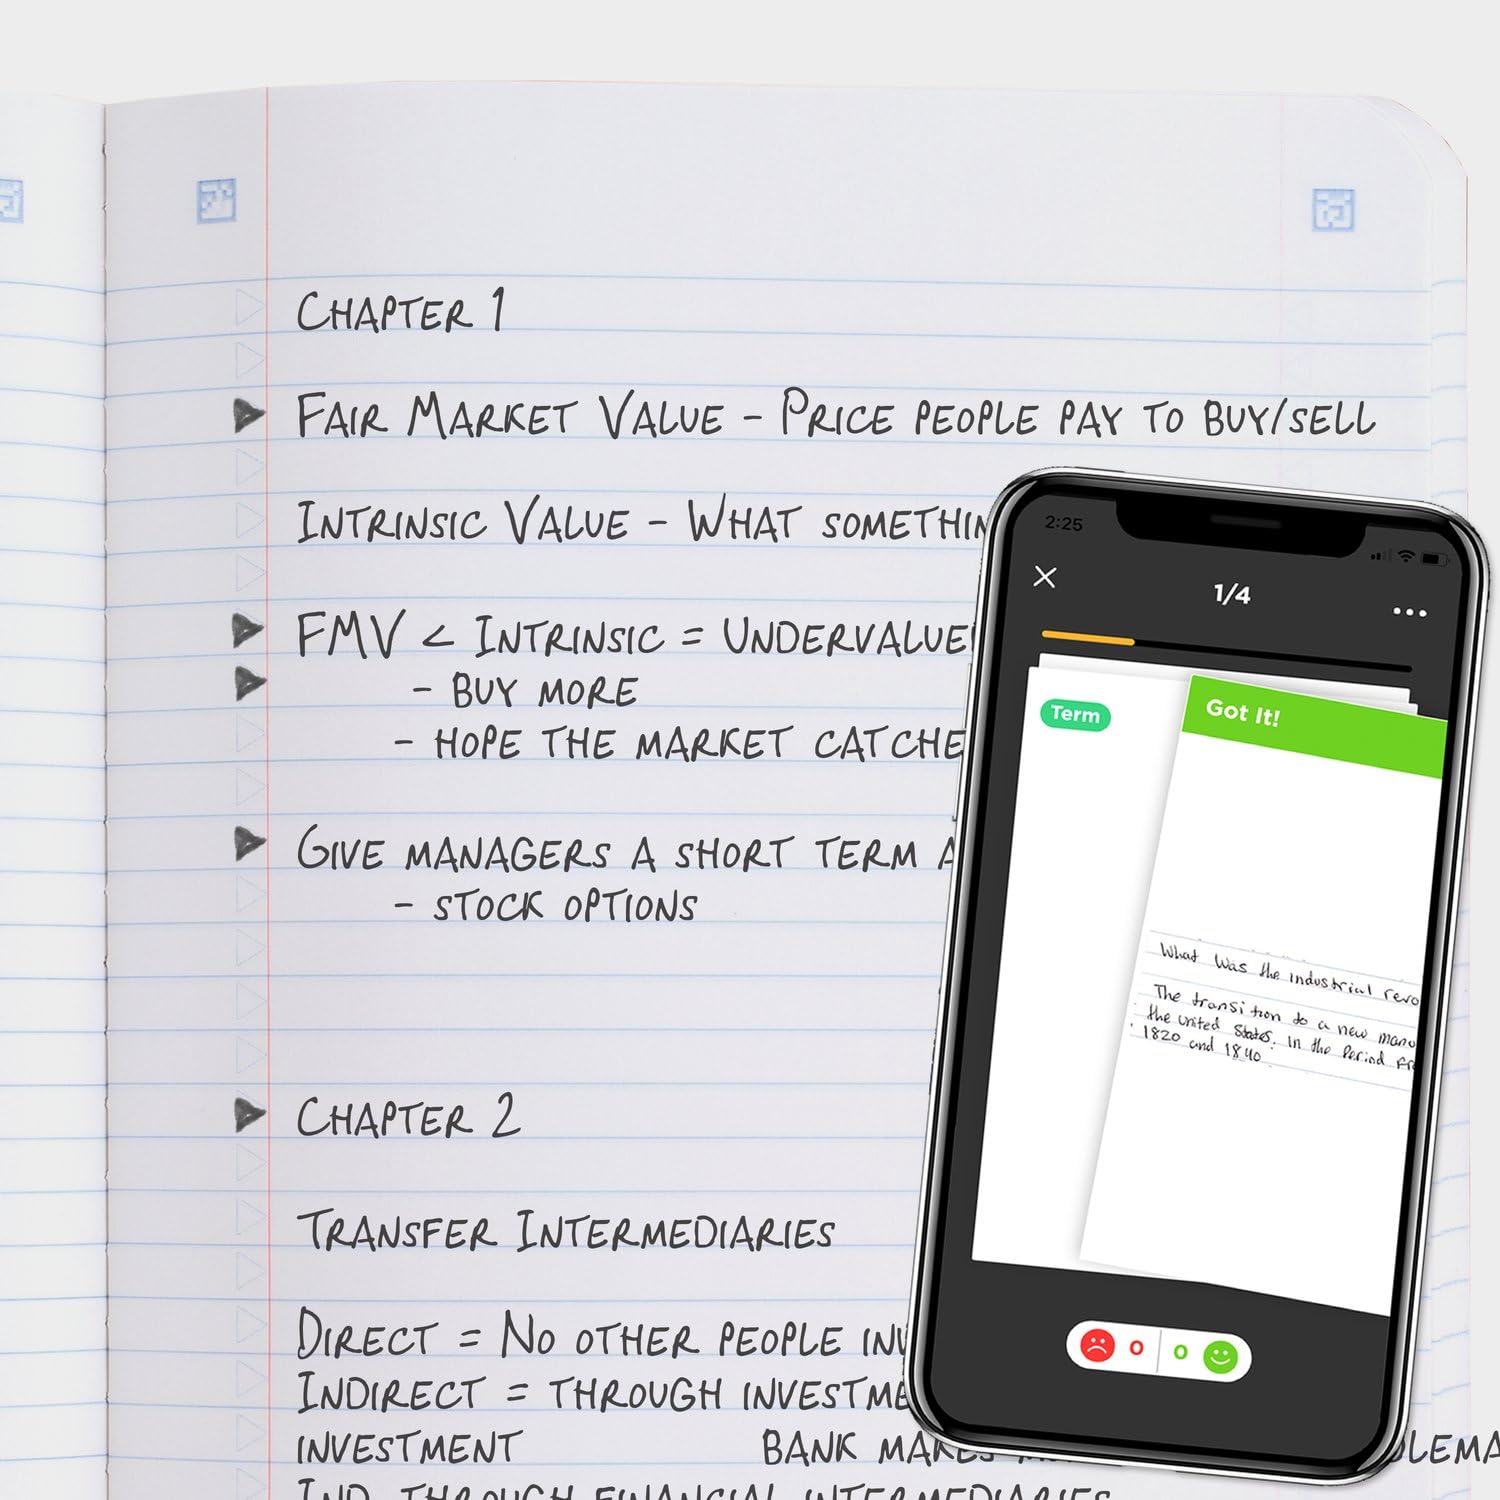 CHAPTER 1
FAIR MARKET VALUE - PRICE PEOPLE PAY TO BUY/SELL
INTRINSIC VALUE - WHAT
FMV < INTRINSIC =
- BUY MORE
- HOPE THE MARKET
GIVE MANAGERS A SHORT TERM
- STOCK OPTIONS
CHAPTER 2
TRANSFER INTERMEDIARIES
DIRECT = NO OTHER PEOPLE
INDIRECT = THROUGH
INVESTMENT BANK MAKES
IND. THROUGH FINANCIAL INTERMEDIARIES
2:25
1/4
Term
Got It!
What was the industrial
The transition to a new
the united States, in the Period
1820 and 1840
0 0